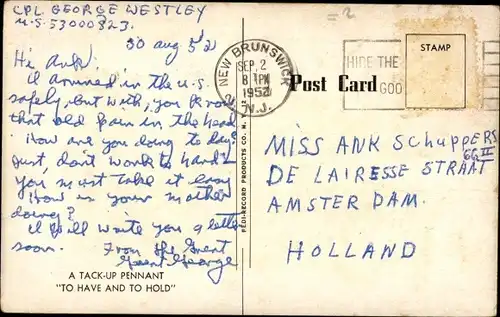 CPL GEORGE WESTLEY
U.S. 53000823.
30 aug 52
Hi Ank!
I arrived in the U.S.
safely, but with, you know
that old pain in the head.
How are you doing to day?
Just, don't work to hard
You must take it easy
How is your mother
doing?
I will write you a letter
soon. From the Great
George
A TACK-UP PENNANT
"TO HAVE AND TO HOLD"
PEDI-RECORD PRODUCTS CO. N.Y.
NEW BRUNSWICK
SEP 2
8 PM
1952
N.J.
THE
GOO
STAMP
Post Card
MISS ANK Schuppers
66 II
DE LAIRESSE STRAAT
AMSTERDAM.
HOLLAND